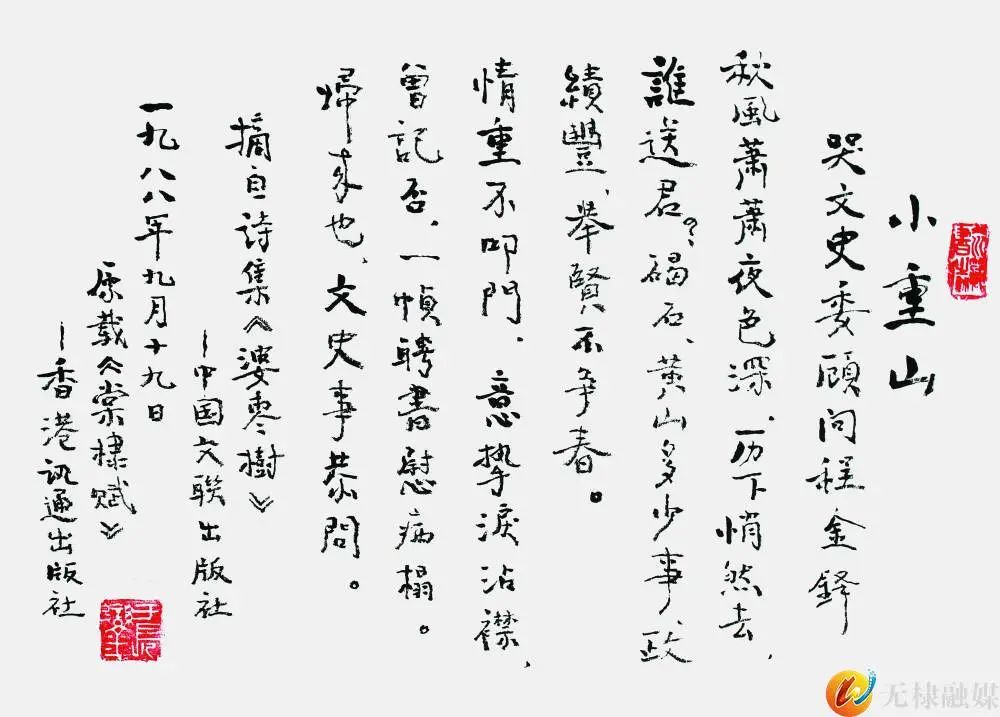 小重山
哭文史委顧问程金鐸
秋風蕭蕭夜色深、历下悄然去、
誰送君？碣石、黄山多少事、政
績豐、举賢不争春。
情重不叩門、意挚淚沾襟、
曾記否、一幀聘書慰病榻。
歸来也、文史事恭問。
摘自詩集《婆枣樹》
－中国文联出版社
一九八八年九月十九日
原载《棠棣赋》
－香港讯通出版社
无棣融媒